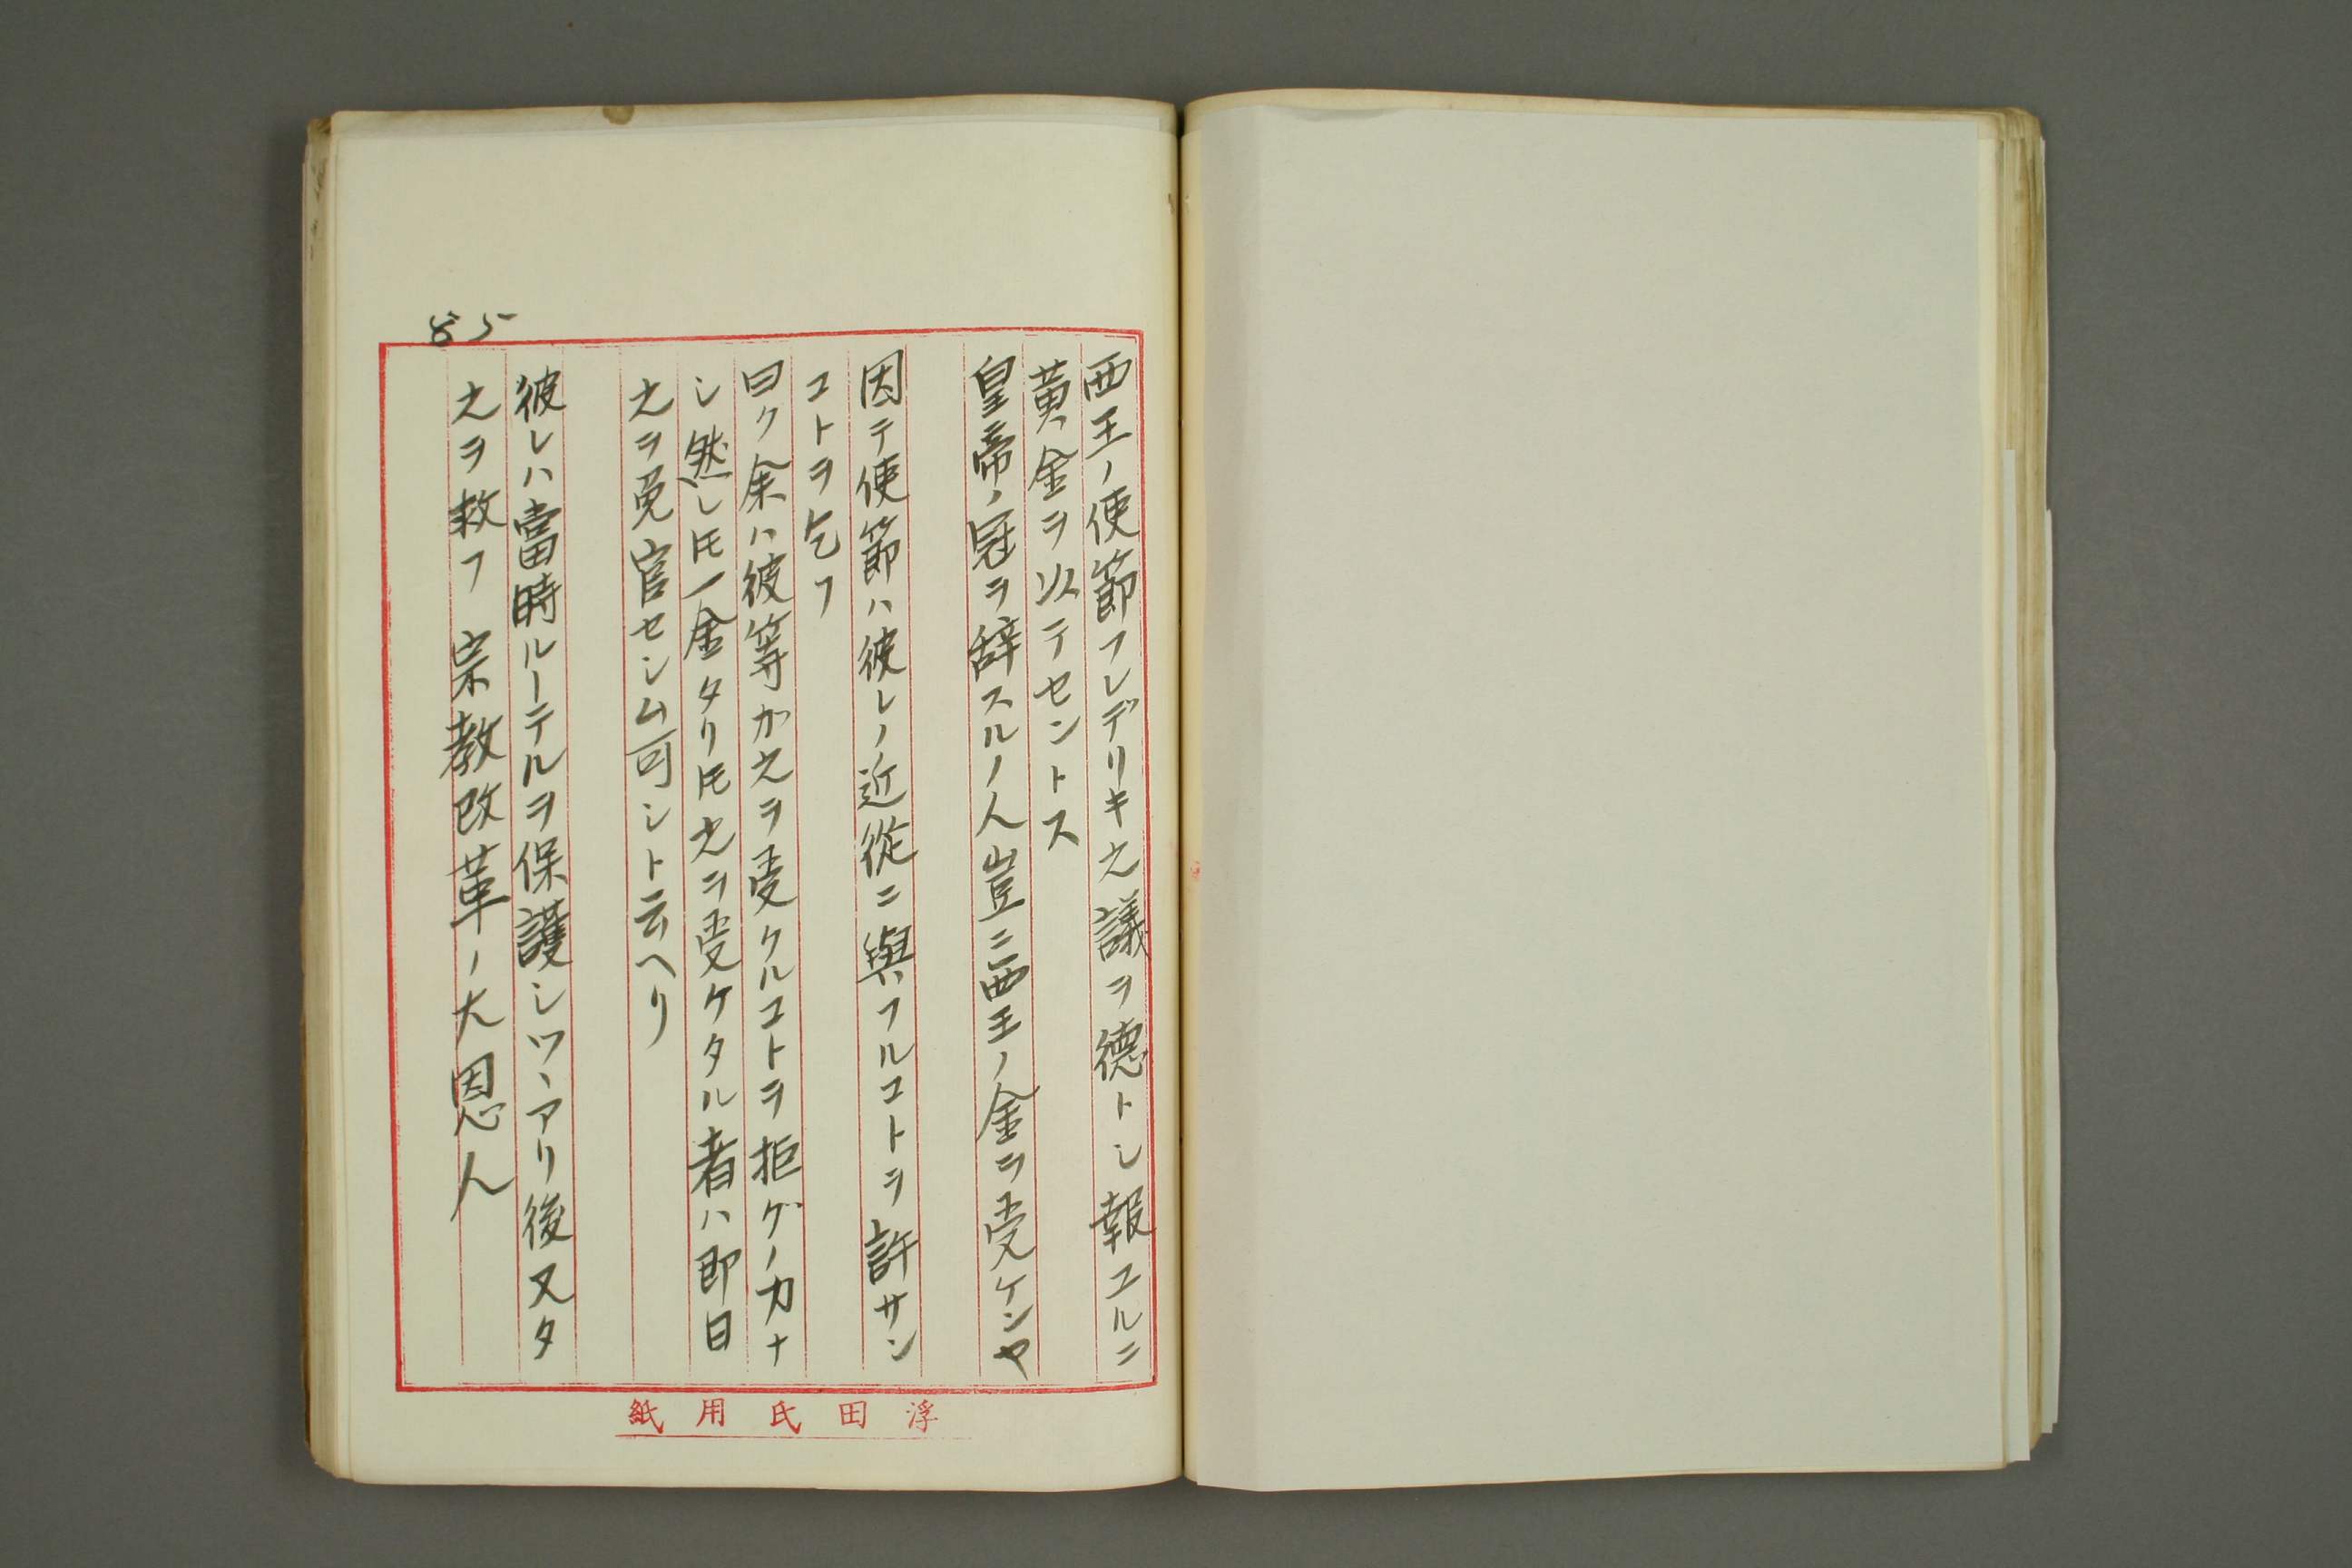 85
西王ノ使節フレデリキ之議ヲ徳トシ報ユルニ
黄金ヲ以テセントス
皇帝ノ冠ヲ辞スルノ人豈ニ西王ノ金ヲ受ケンヤ
因テ使節ハ彼レノ近從ニ與フルコトヲ許サン
コトヲ乞フ
曰ク余ハ彼等カ之ヲ受クルコトヲ拒グノ力ナ
シ然レ𪜈一金タリ𪜈之ヲ受ケタル者ハ即日
之ヲ免官セシム可シト云ヘリ
彼レハ當時ルーテルヲ保護シツヽアリ後又タ
之ヲ救フ 宗教改革ノ大恩人
浮田氏用紙